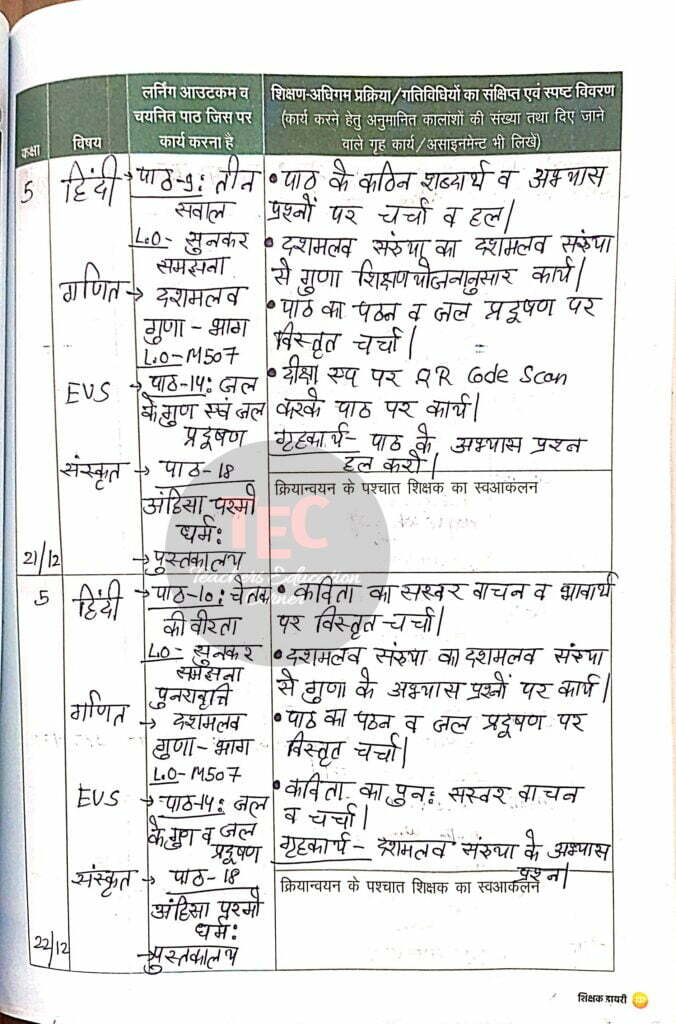 कक्षा
विषय
लर्निंग आउटकम व
चयनित पाठ जिस पर
कार्य करना है
शिक्षण-अधिगम प्रक्रिया/गतिविधियों का संक्षिप्त एवं स्पष्ट विवरण
(कार्य करने हेतु अनुमानित कालांशों की संख्या तथा दिए जाने
वाले गृह कार्य/असाइनमेन्ट भी लिखें)
5
हिंदी → पाठ-9: तीन
सवाल
L.O- सुनकर
समझना
गणित → दशमलव
गुणा - भाग
L.O-M507
EVS → पाठ-14: जल
के गुण एवं जल
प्रदूषण
संस्कृत → पाठ-18
अंहिसा परमो
धर्म:
→ पुस्तकालय
21/12
• पाठ के कठिन शब्दार्थ व अभ्यास
प्रश्नों पर चर्चा व हल।
• दशमलव संख्या का दशमलव संख्या
से गुणा शिक्षण योजनानुसार कार्य।
• पाठ का पठन व जल प्रदूषण पर
विस्तृत चर्चा।
• दीक्षा एप पर QR Code Scan
करके पाठ पर कार्य।
गृहकार्य- पाठ के अभ्यास प्रश्न
हल करो।
क्रियान्वयन के पश्चात शिक्षक का स्वआकंलन
TEC
Teachers Education
5
हिंदी → पाठ-10: चेतक
की वीरता
L.O- सुनकर
समझना
पुनरावृत्ति
गणित → दशमलव
गुणा - भाग
L.O-M507
EVS → पाठ-14: जल
के गुण व जल
प्रदूषण
संस्कृत → पाठ-18
अंहिसा परमो
धर्म:
→ पुस्तकालय
22/12
• कविता का सस्वर वाचन व भावार्थ
पर विस्तृत चर्चा।
• दशमलव संख्या का दशमलव संख्या
से गुणा के अभ्यास प्रश्नों पर कार्य।
• पाठ का पठन व जल प्रदूषण पर
विस्तृत चर्चा।
• कविता का पुन: सस्वर वाचन
व चर्चा।
गृहकार्य - दशमलव संख्या के अभ्यास
प्रश्न।
क्रियान्वयन के पश्चात शिक्षक का स्वआकंलन
शिक्षक डायरी